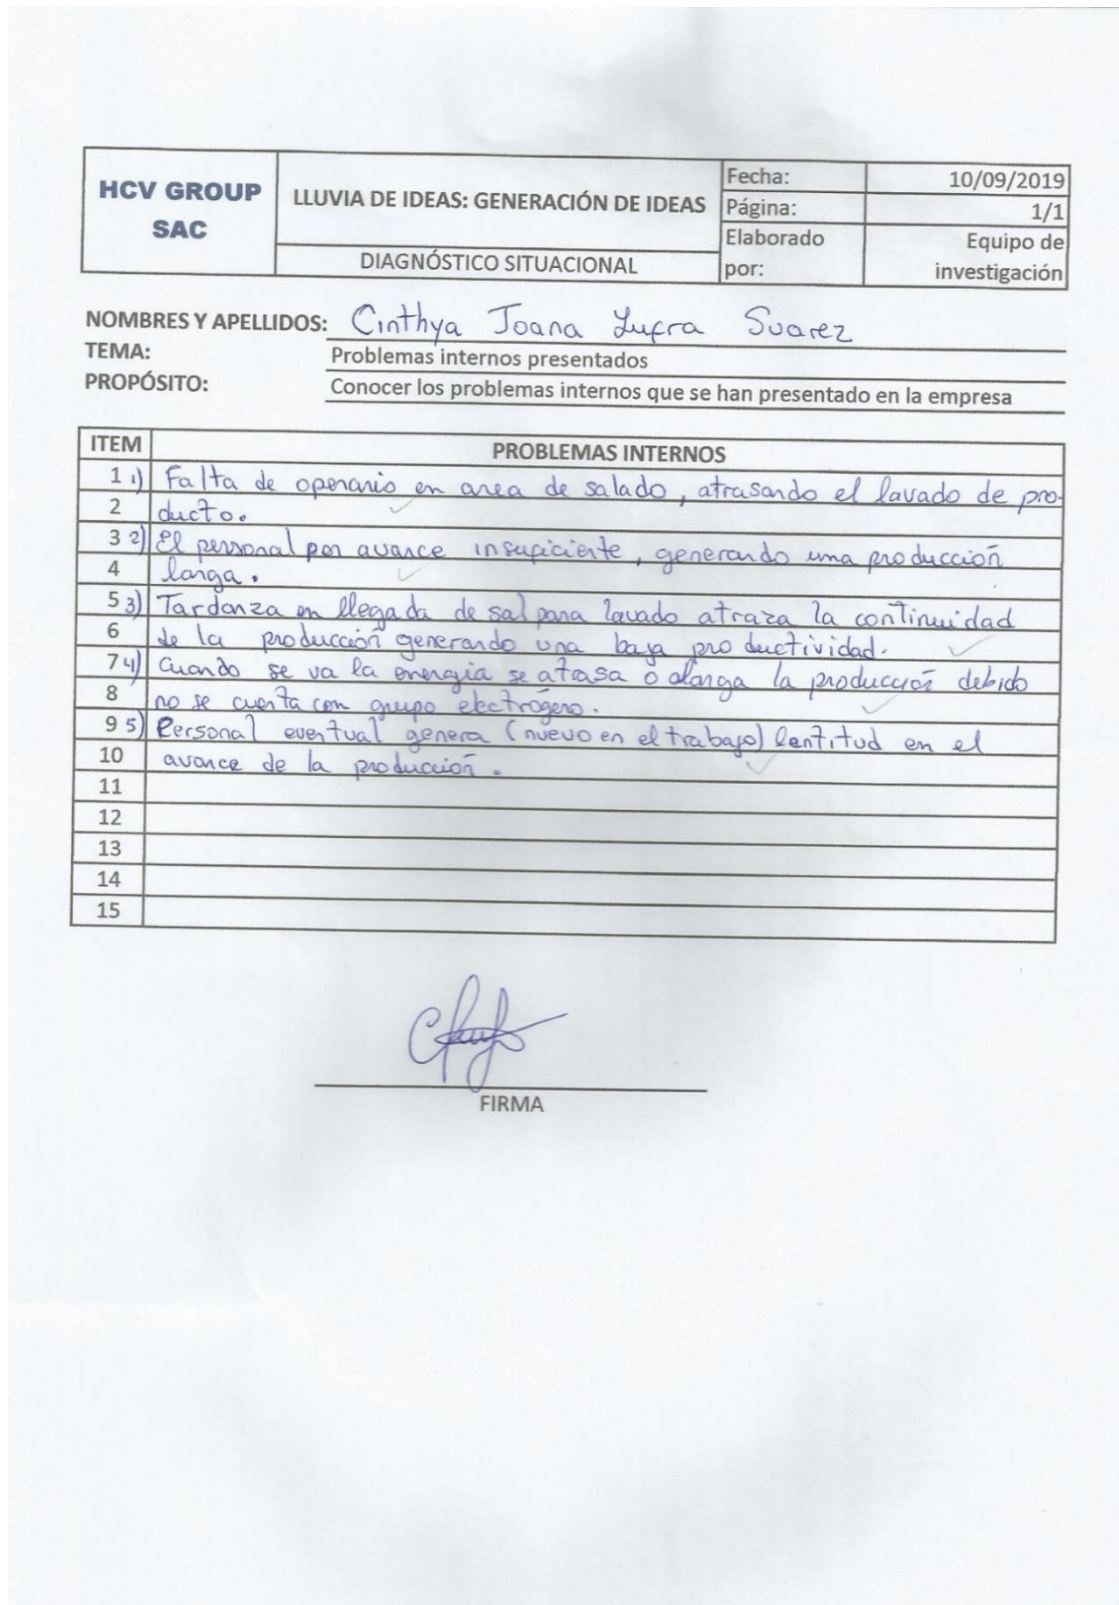 HCV GROUP
SAC
LLUVIA DE IDEAS: GENERACIÓN DE IDEAS
DIAGNÓSTICO SITUACIONAL
Fecha: 10/09/2019
Página: 1/1
Elaborado por: Equipo de investigación
NOMBRES Y APELLIDOS: Cinthya Joana Lufra Suarez
TEMA: Problemas internos presentados
PROPÓSITO: Conocer los problemas internos que se han presentado en la empresa
ITEM PROBLEMAS INTERNOS
1 1) Falta de operario en area de salado, atrasando el lavado de pro-
2 ducto.
3 2) El personal por avance insuficiente, generando una producción
4 larga.
5 3) Tardanza en llegada de sal para lavado atraza la continuidad
6 de la producción generando una baja productividad.
7 4) Cuando se va la energia se atrasa o alarga la producción debido
8 no se cuenta con grupo electrógeno.
9 5) Personal eventual genera (nuevo en el trabajo) lentitud en el
10 avance de la producción.
11
12
13
14
15
FIRMA